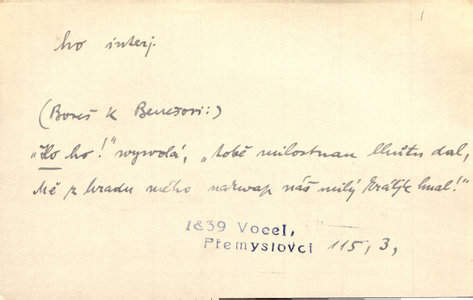 ho interj.
(Boreš k Benešovi:)
"Ho ho!" wywolá, "tobě milostnau lhůtu dal,
Mě z hradu mého náš milý králjk hnal!"
1839 Vocel,
Přemyslovci 115, 3,